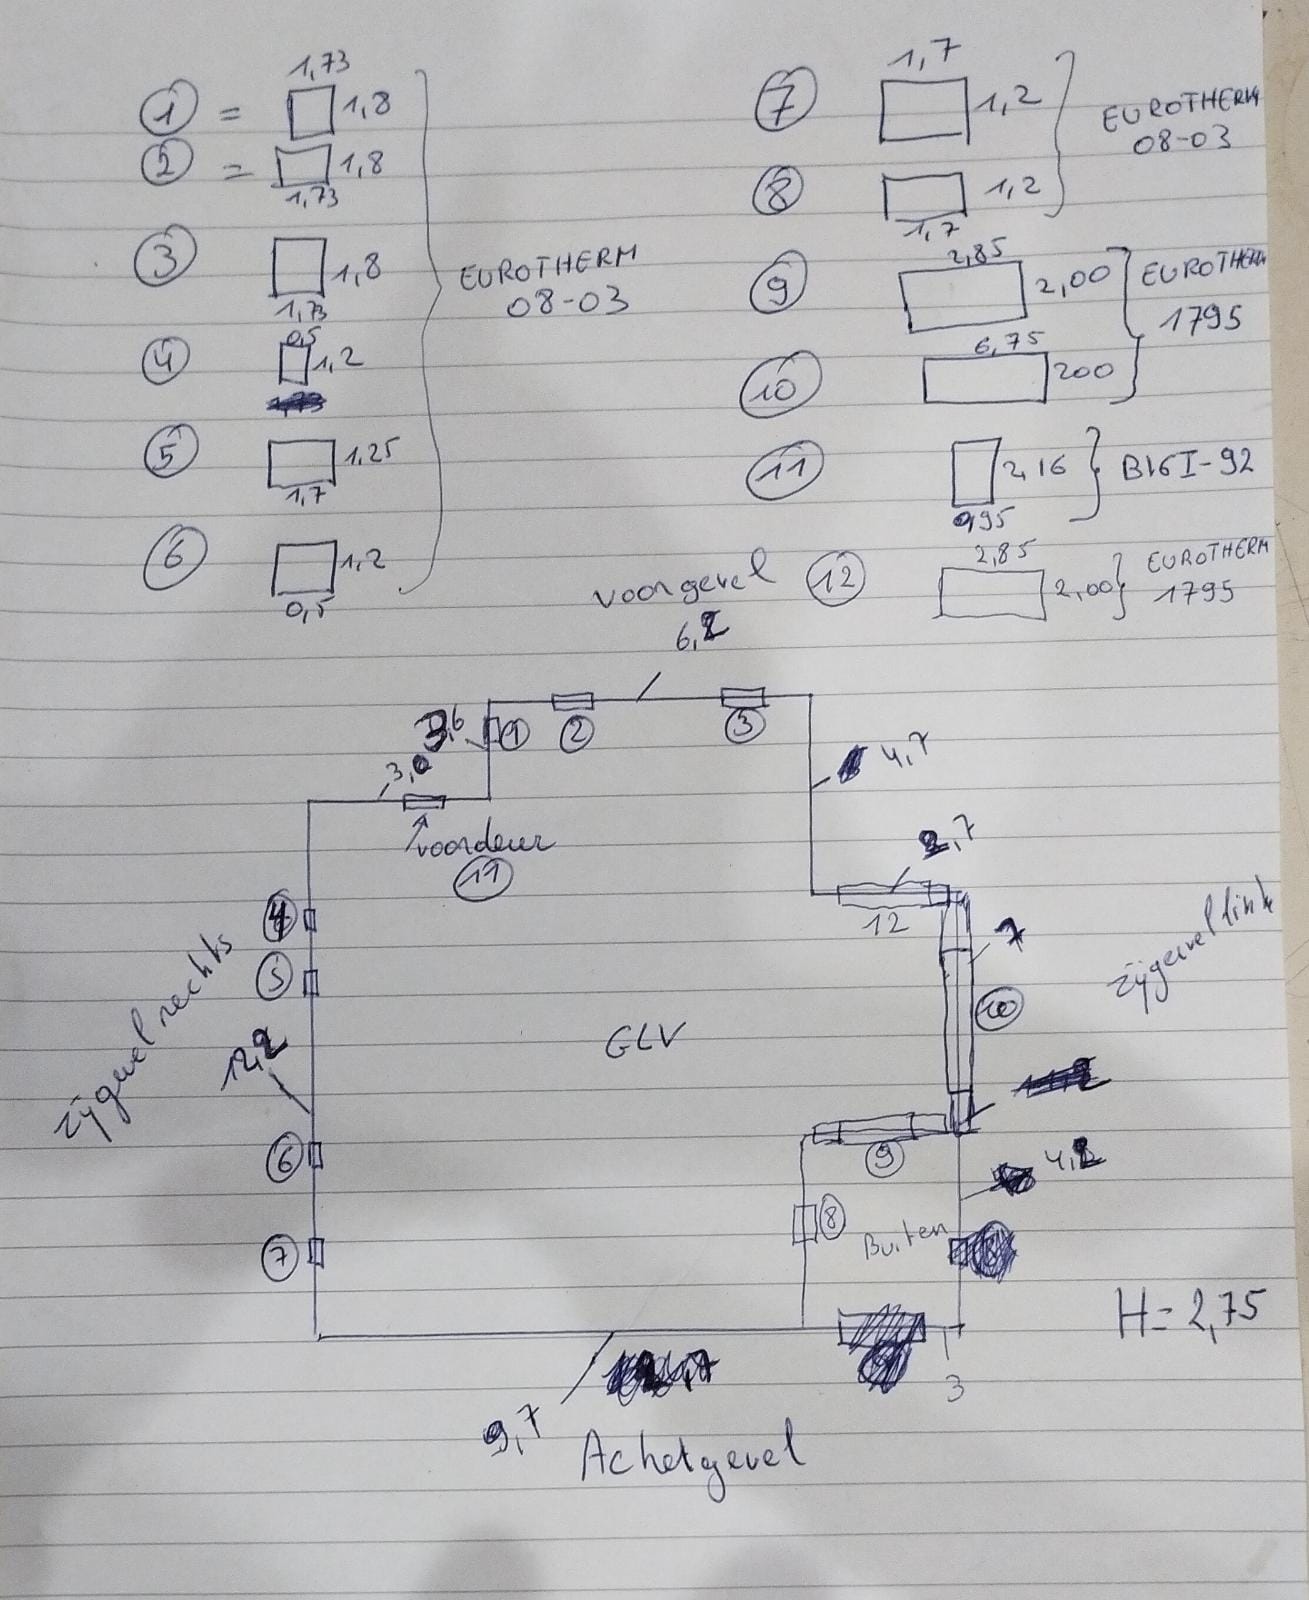 1 = 1,73 1,8
2 = 1,8 1,73
3 1,8 1,73
4 0,5 1,2
5 1,25 1,7
6 1,2 0,5
EUROTHERM
08-03
7 1,7 1,2
8 1,2 1,7
EUROTHERM
08-03
9 2,85 2,00
10 6,75 200
EUROTHERM
1795
11 2,16 0,95 B16I-92
12 2,85 2,00
EUROTHERM
1795
voorgevel
6,2
3,6 1 2 3
3,0
4,7
voordeur
11
2,7
12
4
5
zijgevel rechts
12,2
6
7
GLV
7
10
zijgevel link
9
4,2
8
Buiten
H= 2,75
3
9,7
Achetgevel